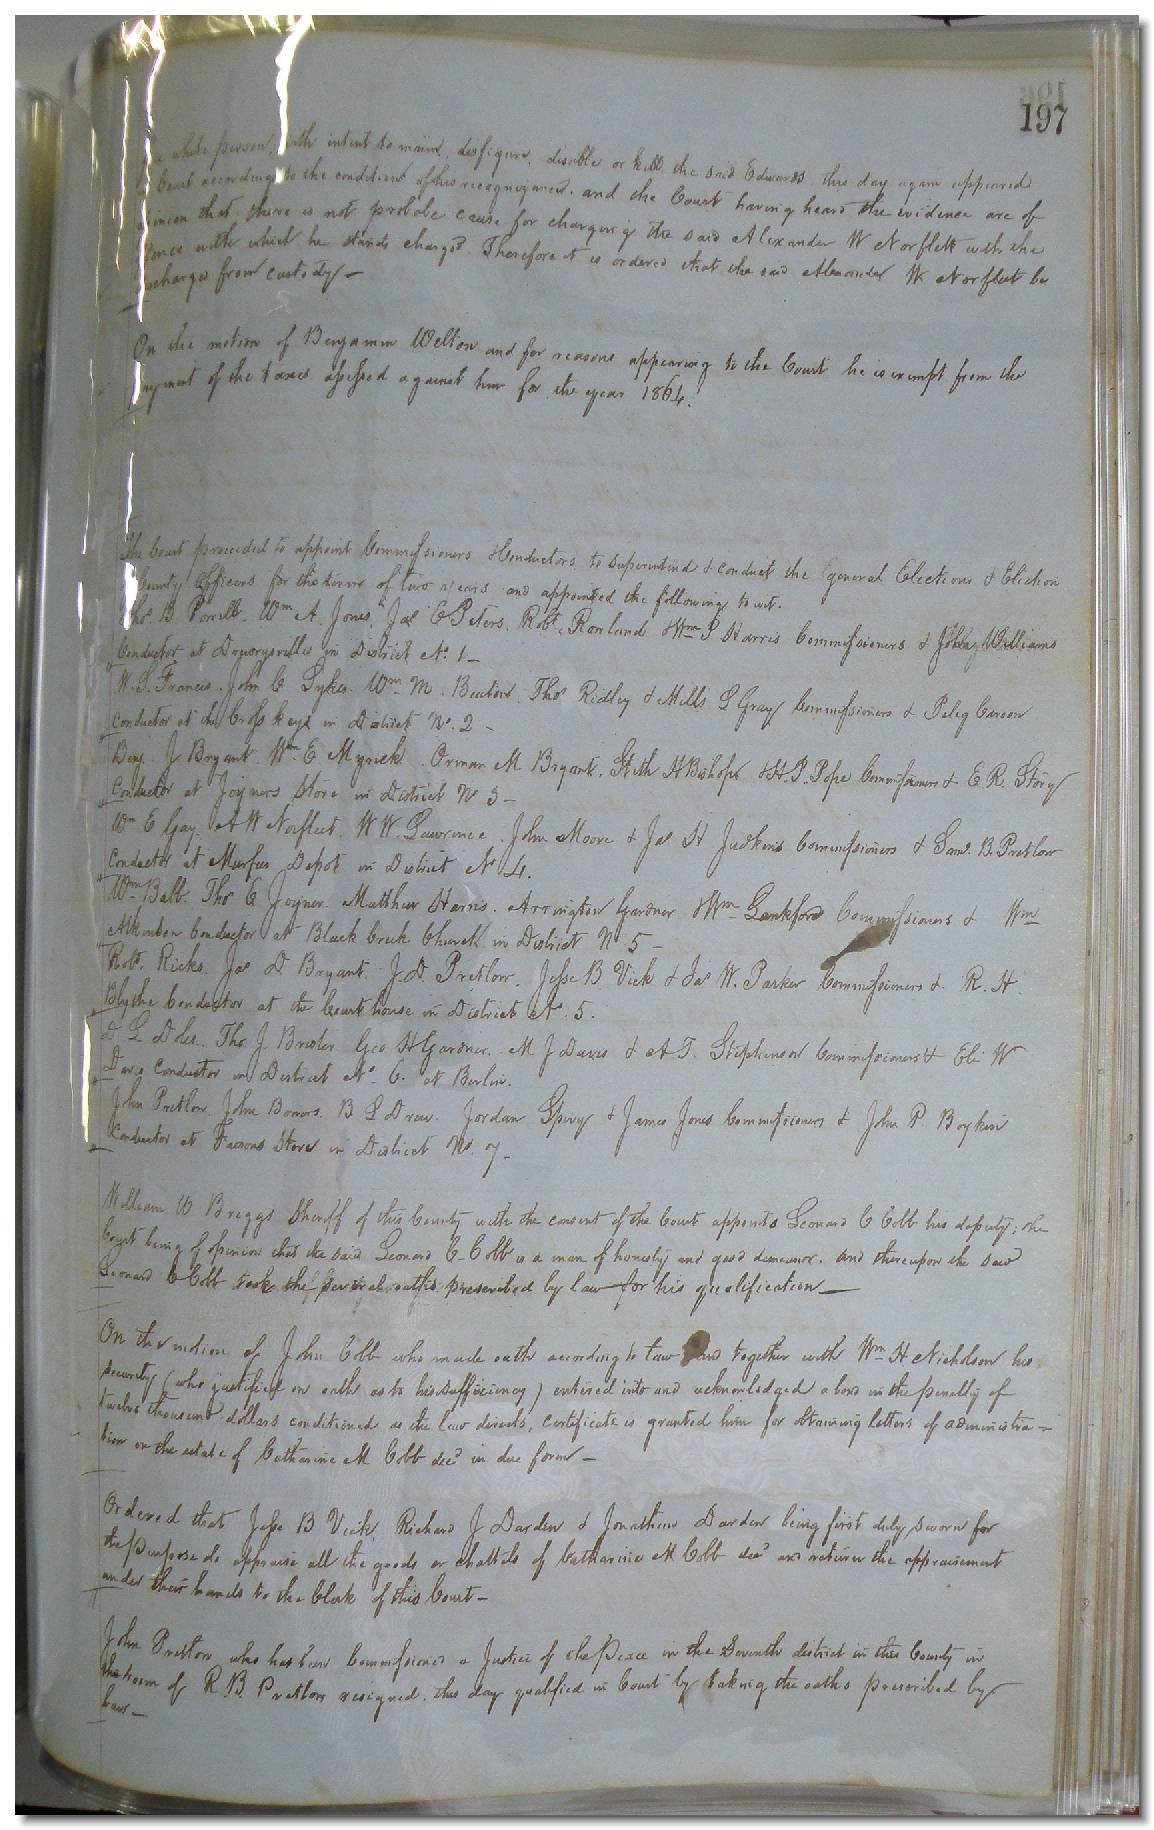 197
white person, with intent to maim, disfigure, disable or kill the said Edwards this day again appeared
Court according to the condition of his recognizance, and the Court having heard the evidence are of
opinion that there is not probable cause for charging the said Alexander W Norfleet with the
with which he stands charged. Therefore it is ordered that the said Alexander W. Norfleet be
discharged from custody—
On the motion of Benjamin Welton and for reasons appearing to the Court he is exempt from the
payment of the taxes assessed against him for the year 1864.
The Court proceeded to appoint Commissioners & Conductors to superintend & conduct the general Elections & Election
County Officers for the term of two years and appointed the following to wit.
Thos. B Wm A. Jones, Jas E Peters, Robt. Rowland & Wm S Harris Commissioners & Williams
Conductor at Drewrysville in District No. 1—
W. S. Francis. John C Sykes. Wm. M. Beaton. Thos Ridley & Mills S Gray Commissioners & Peleg
Conductor at the Cross keys in District No. 2 —
Benj. J Bryant. Wm E Myrick. Orman M Bryant. Steth H Bishop & H. P. Pope Commissioners & E. R. Story
Conductor at Joyners Store in District No 3—
Wm E Gay. A W Norfleet. W W. Lawrence. John Moore & Jas H Judkins Commissioners & Saml. B. Pretlow
Conductor at Murfees Depot in District No 4.
Wm Balb. Thos E Joyner. Matthew Harris. Arrington Gardner & Wm Lankford Commissioners & Wm
Atkinson Conductor at Black Creek Church in District No 5—
Robt. Ricks. Jas D Bryant. J. D. Pretlow. Jesse B. Vick & Jas W. Parker Commissioners & R. H.
Blythe Conductor at the Court house in District No. 5.
D L Doles. Tho J Bristor Geo H Gardner. M J Davis & A T. Stephenson Commissioners & Eli W
Conductor in District No. 6. at Berlin.
John Pretlow. John Bowers. B L Drew. Jordan Spivy & James Jones Commissioners & John P. Boykin
Conductor at Faisons Store in District No. 7—
William W Briggs Sheriff of this County with the consent of the Court appoints Leonard C Cobb his deputy; the
Court being of opinion that the said Leonard C. Cobb is a man of honesty and good demeanor. and thereupon the said
Leonard C Cobb took the several oaths prescribed by law for his qualification—
On the motion of John Cobb who made oath according to law and together with Wm H Nicholson his
security (who justified on oath as to his sufficiency) entered into and acknowledged a bond in the penalty of
twelve thousand dollars conditioned as the law directs, certificate is granted him for obtaining letters of administra=
tion on the estate of Catharine M Cobb decd in due form—
Ordered that Jesse B Vick, Richard J Darden & Jonathan Darden being first duly sworn for
the purpose do appraise all the goods or chattels of Catharine M Cobb decd and return the appraisement
under their hands to the Clerk of this Court—
John Pretlow who has been Commissioned a Justice of the Peace in the Seventh district in this County in
the room of R. B. Pretlow resigned, this day qualified in Court by taking the oaths prescribed by
law—